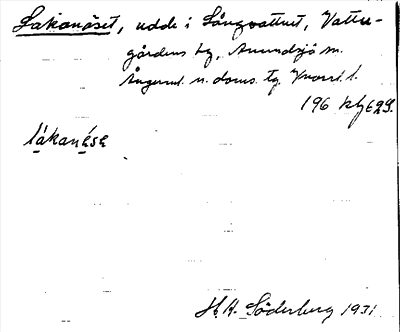 Lakanäset, udde i Långvattnet, Vattu-
gårdens by, Anundsjö sn.
Ångerml. n. doms. tg. Kvarnl. l.
196 kbf 629.
lákanése
H.A. Söderberg 1931